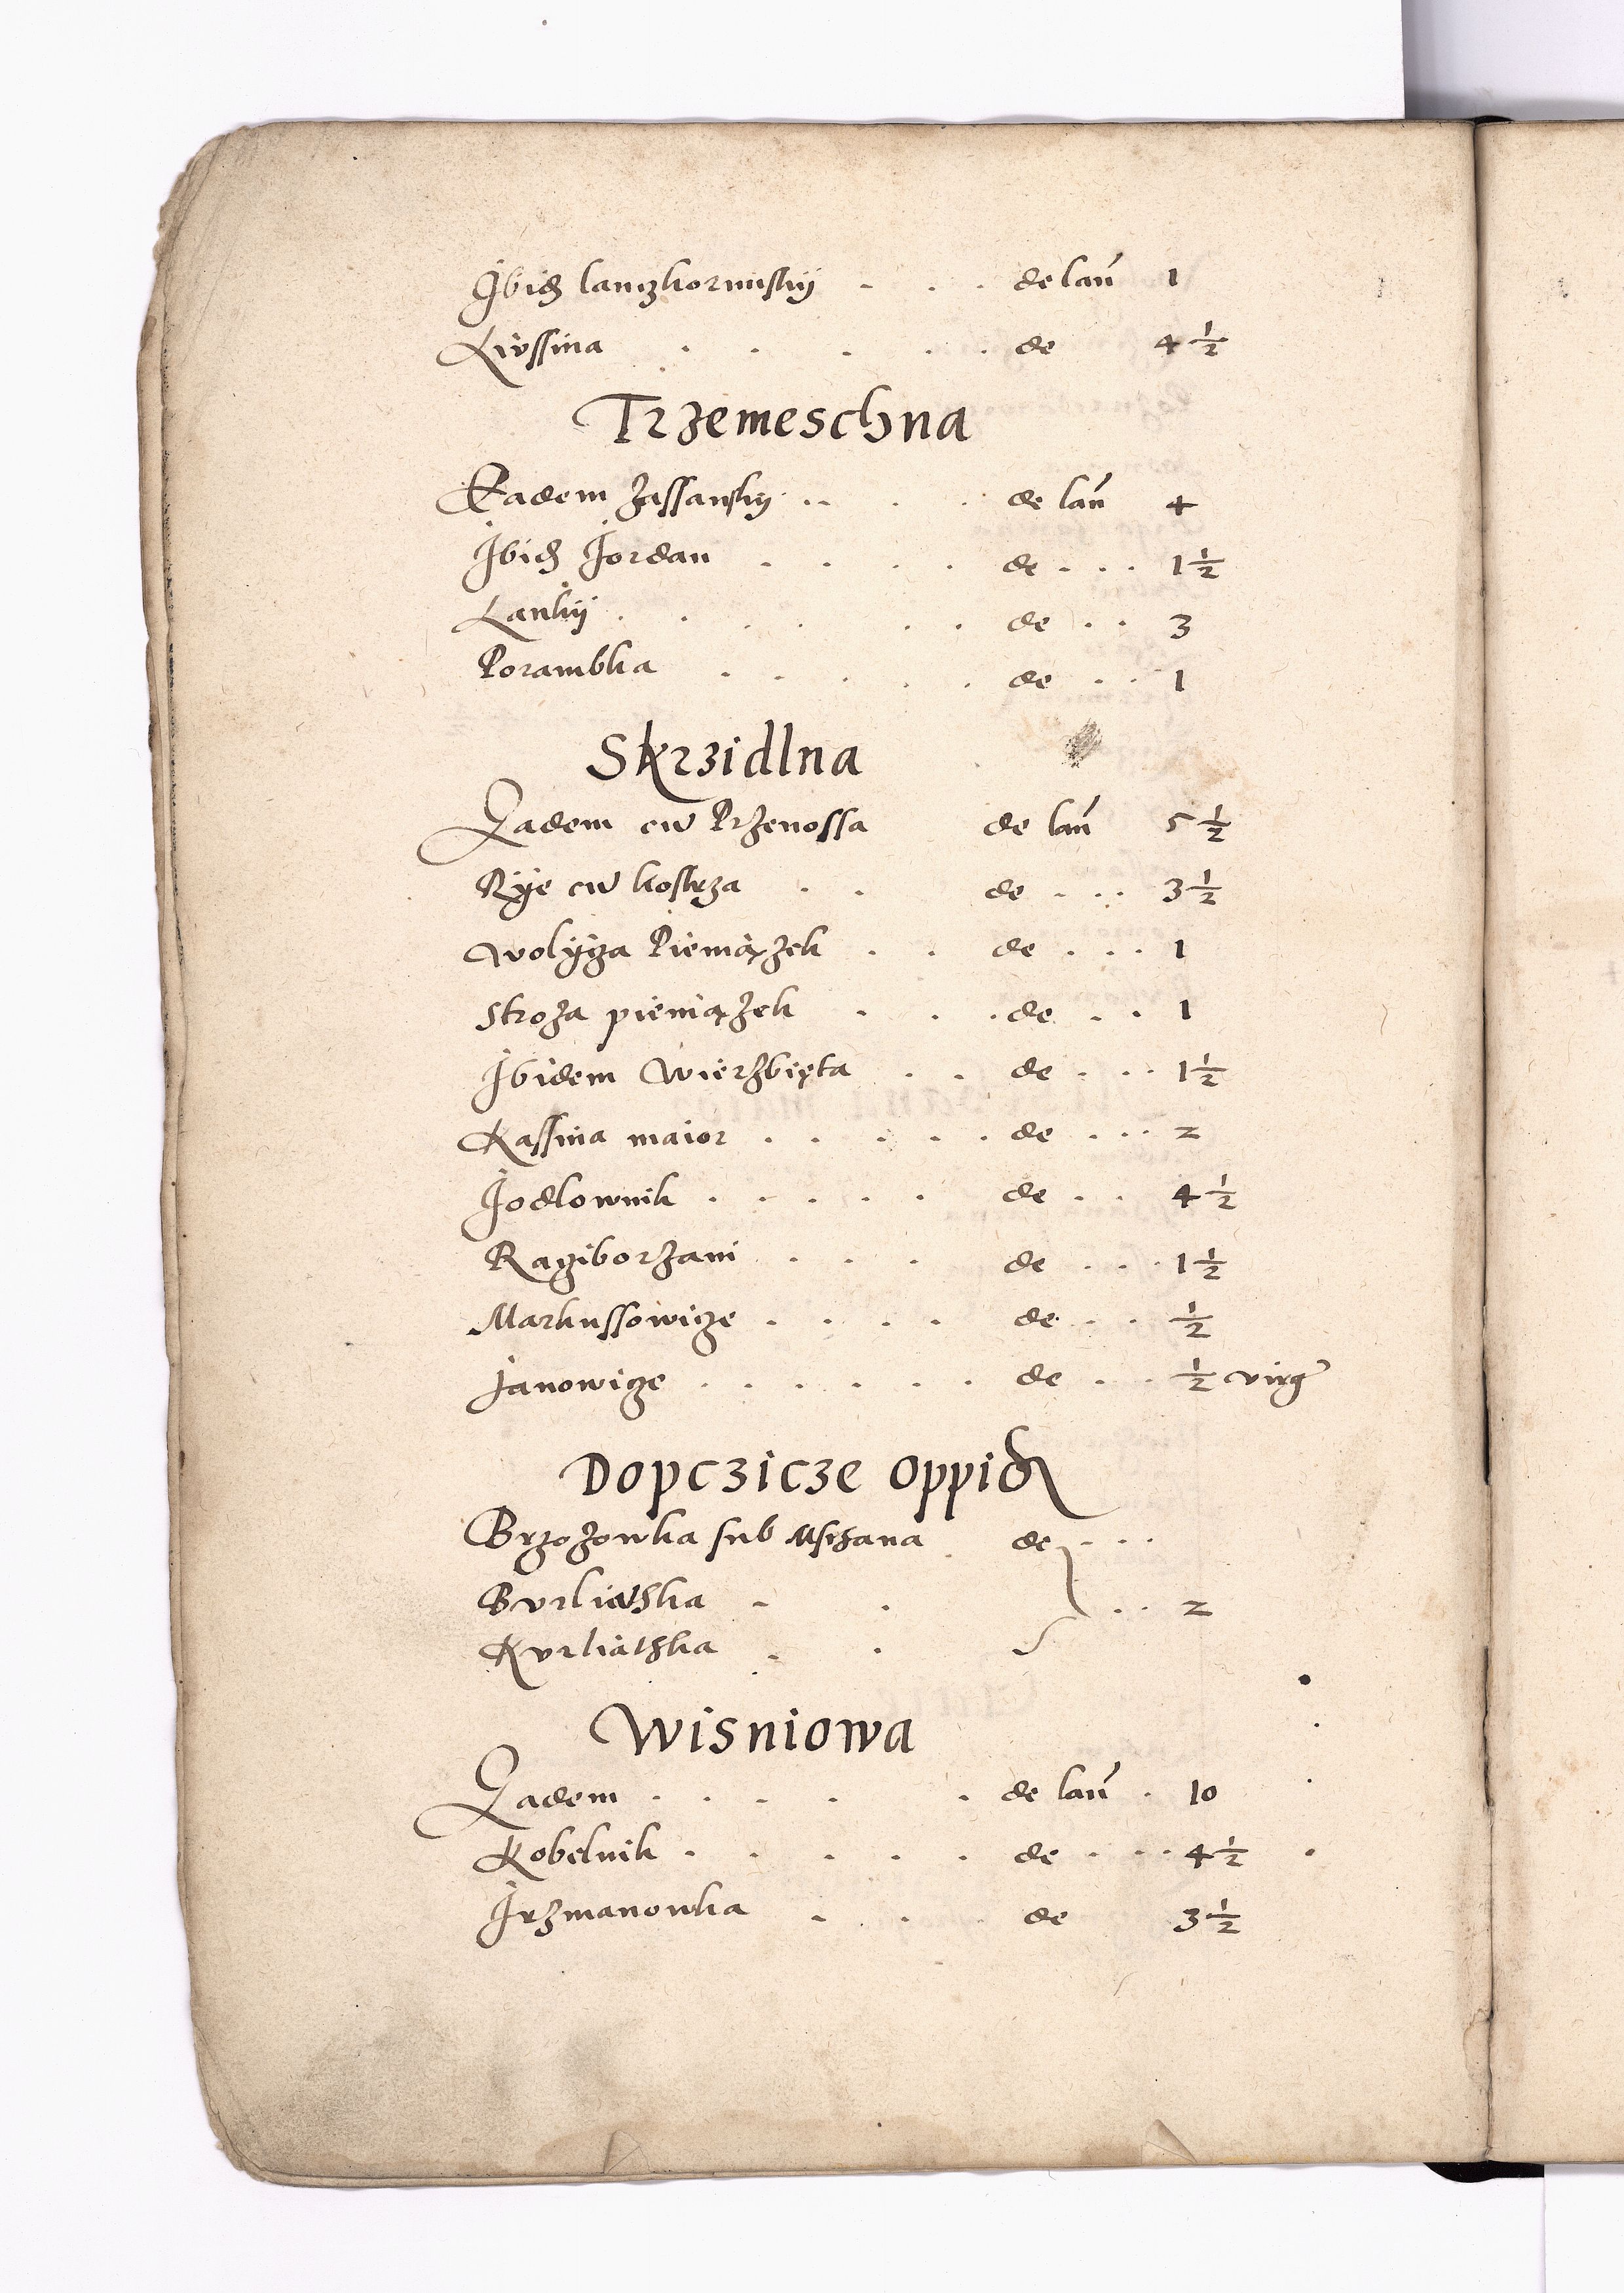 Ibid lanczkorunskÿ . . . de lan 1
Lirssina . . . . . de 4 1/2
Trzemeschna
Eadem Zassanskÿ . . . . de lan 4
Ibid Iordan . . . . de . . . 1 1/2
Lankÿ . . . . . . de . . 3
Porambka . . . . . de . . 1
Skrzidlna
Eadem cu Przenossa de lan 5 1/2
Rÿe cu kostrza . . de . . . 3 1/2
Wolÿcza Pieniązek . . de . . . 1
Stroza pieniązek . . . de . . 1
Ibidem Wierzbięta . . de . . . 1 1/2
Kassina maior . . . . . de . . . 2
Iodlownik . . . . . de . . 4 1/2
Racziborzani . . . de . . . 1 1/2
Markussowicze . . . . de . . 1/2
Janowicze . . . . . . de . . . 1/2 virg
Dopczicze oppid
Brzozowka sub Msczana . de . . .
Burliatzka . . . . 2
Kurliatzka . .
Wisniowa
Eadem . . . . . de lan . 10
Kobelnik . . . . . de . . . 4 1/2
Irzmanowka . . . de 3 1/2